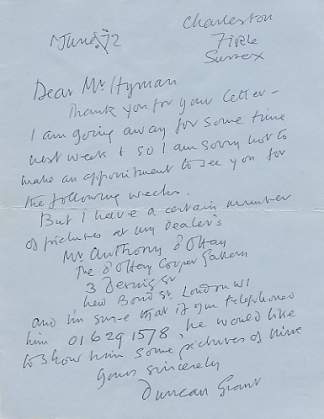 June 72
Charleston
Firle
Sussex
Dear Mr Hyman
Thank you for your letter -
I am going away for some time
next week & so I am sorry not to
make an appointment to see you for
the following weeks.
But I have a certain number
of pictures at my dealer's
Mr Anthony d'Offay
The d'Offay Couper Gallery
3 Dering St
New Bond St. London W1
and I'm sure that if you telephoned
him 01 629 1578, he would like
to show him some pictures of mine
Yours sincerely
Duncan Grant